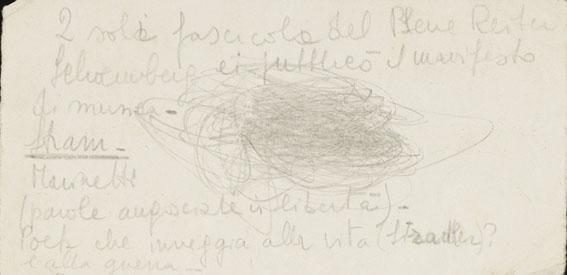 2 soli fascicola del Blene Reiter
Schomberg ci pubblicò il manifesto
di musica -
Stram -
Marinetti
(parole angosciate in libertà) -
Poeta che inneggia alla vita ( )?
e alla guerra -